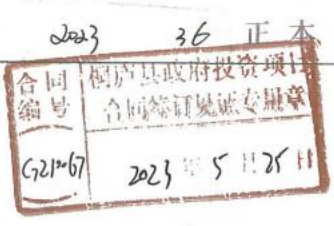 2023 36 正本
合同编号 桐庐县政府投资项目
合同签订见证专用章
2023年5月25日